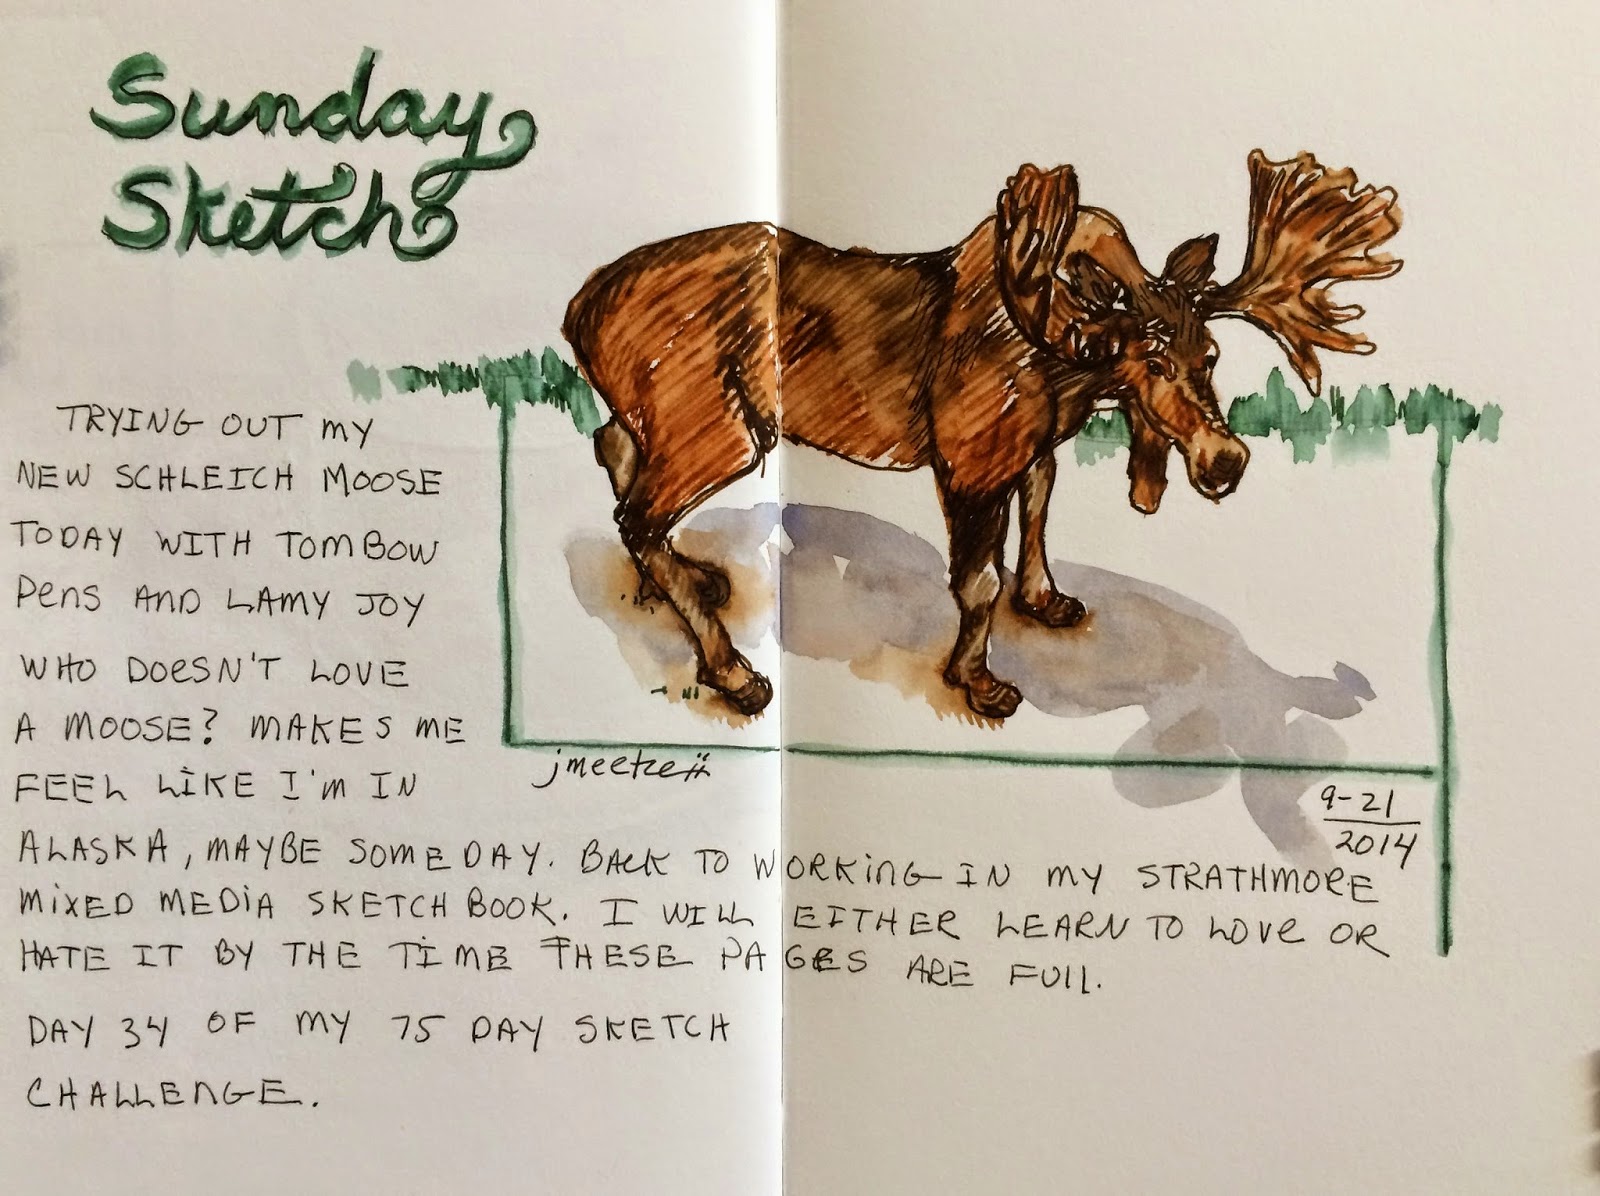 Sunday
Sketch
TRYING OUT MY
NEW SCHLEICH MOOSE
TODAY WITH TOMBOW
PENS AND LAMY JOY
WHO DOESN'T LOVE
A MOOSE? MAKES ME
FEEL LIKE I'M IN
ALASKA, MAYBE SOMEDAY. BACK TO WORKING IN MY STRATHMORE
MIXED MEDIA SKETCHBOOK. I WILL EITHER LEARN TO LOVE OR
HATE IT BY THE TIME THESE PAGES ARE FULL.
DAY 34 OF MY 75 DAY SKETCH
CHALLENGE.
jmeetze
9-21
2014